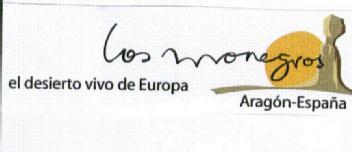 los monegros
el desierto vivo de Europa
Aragón-España